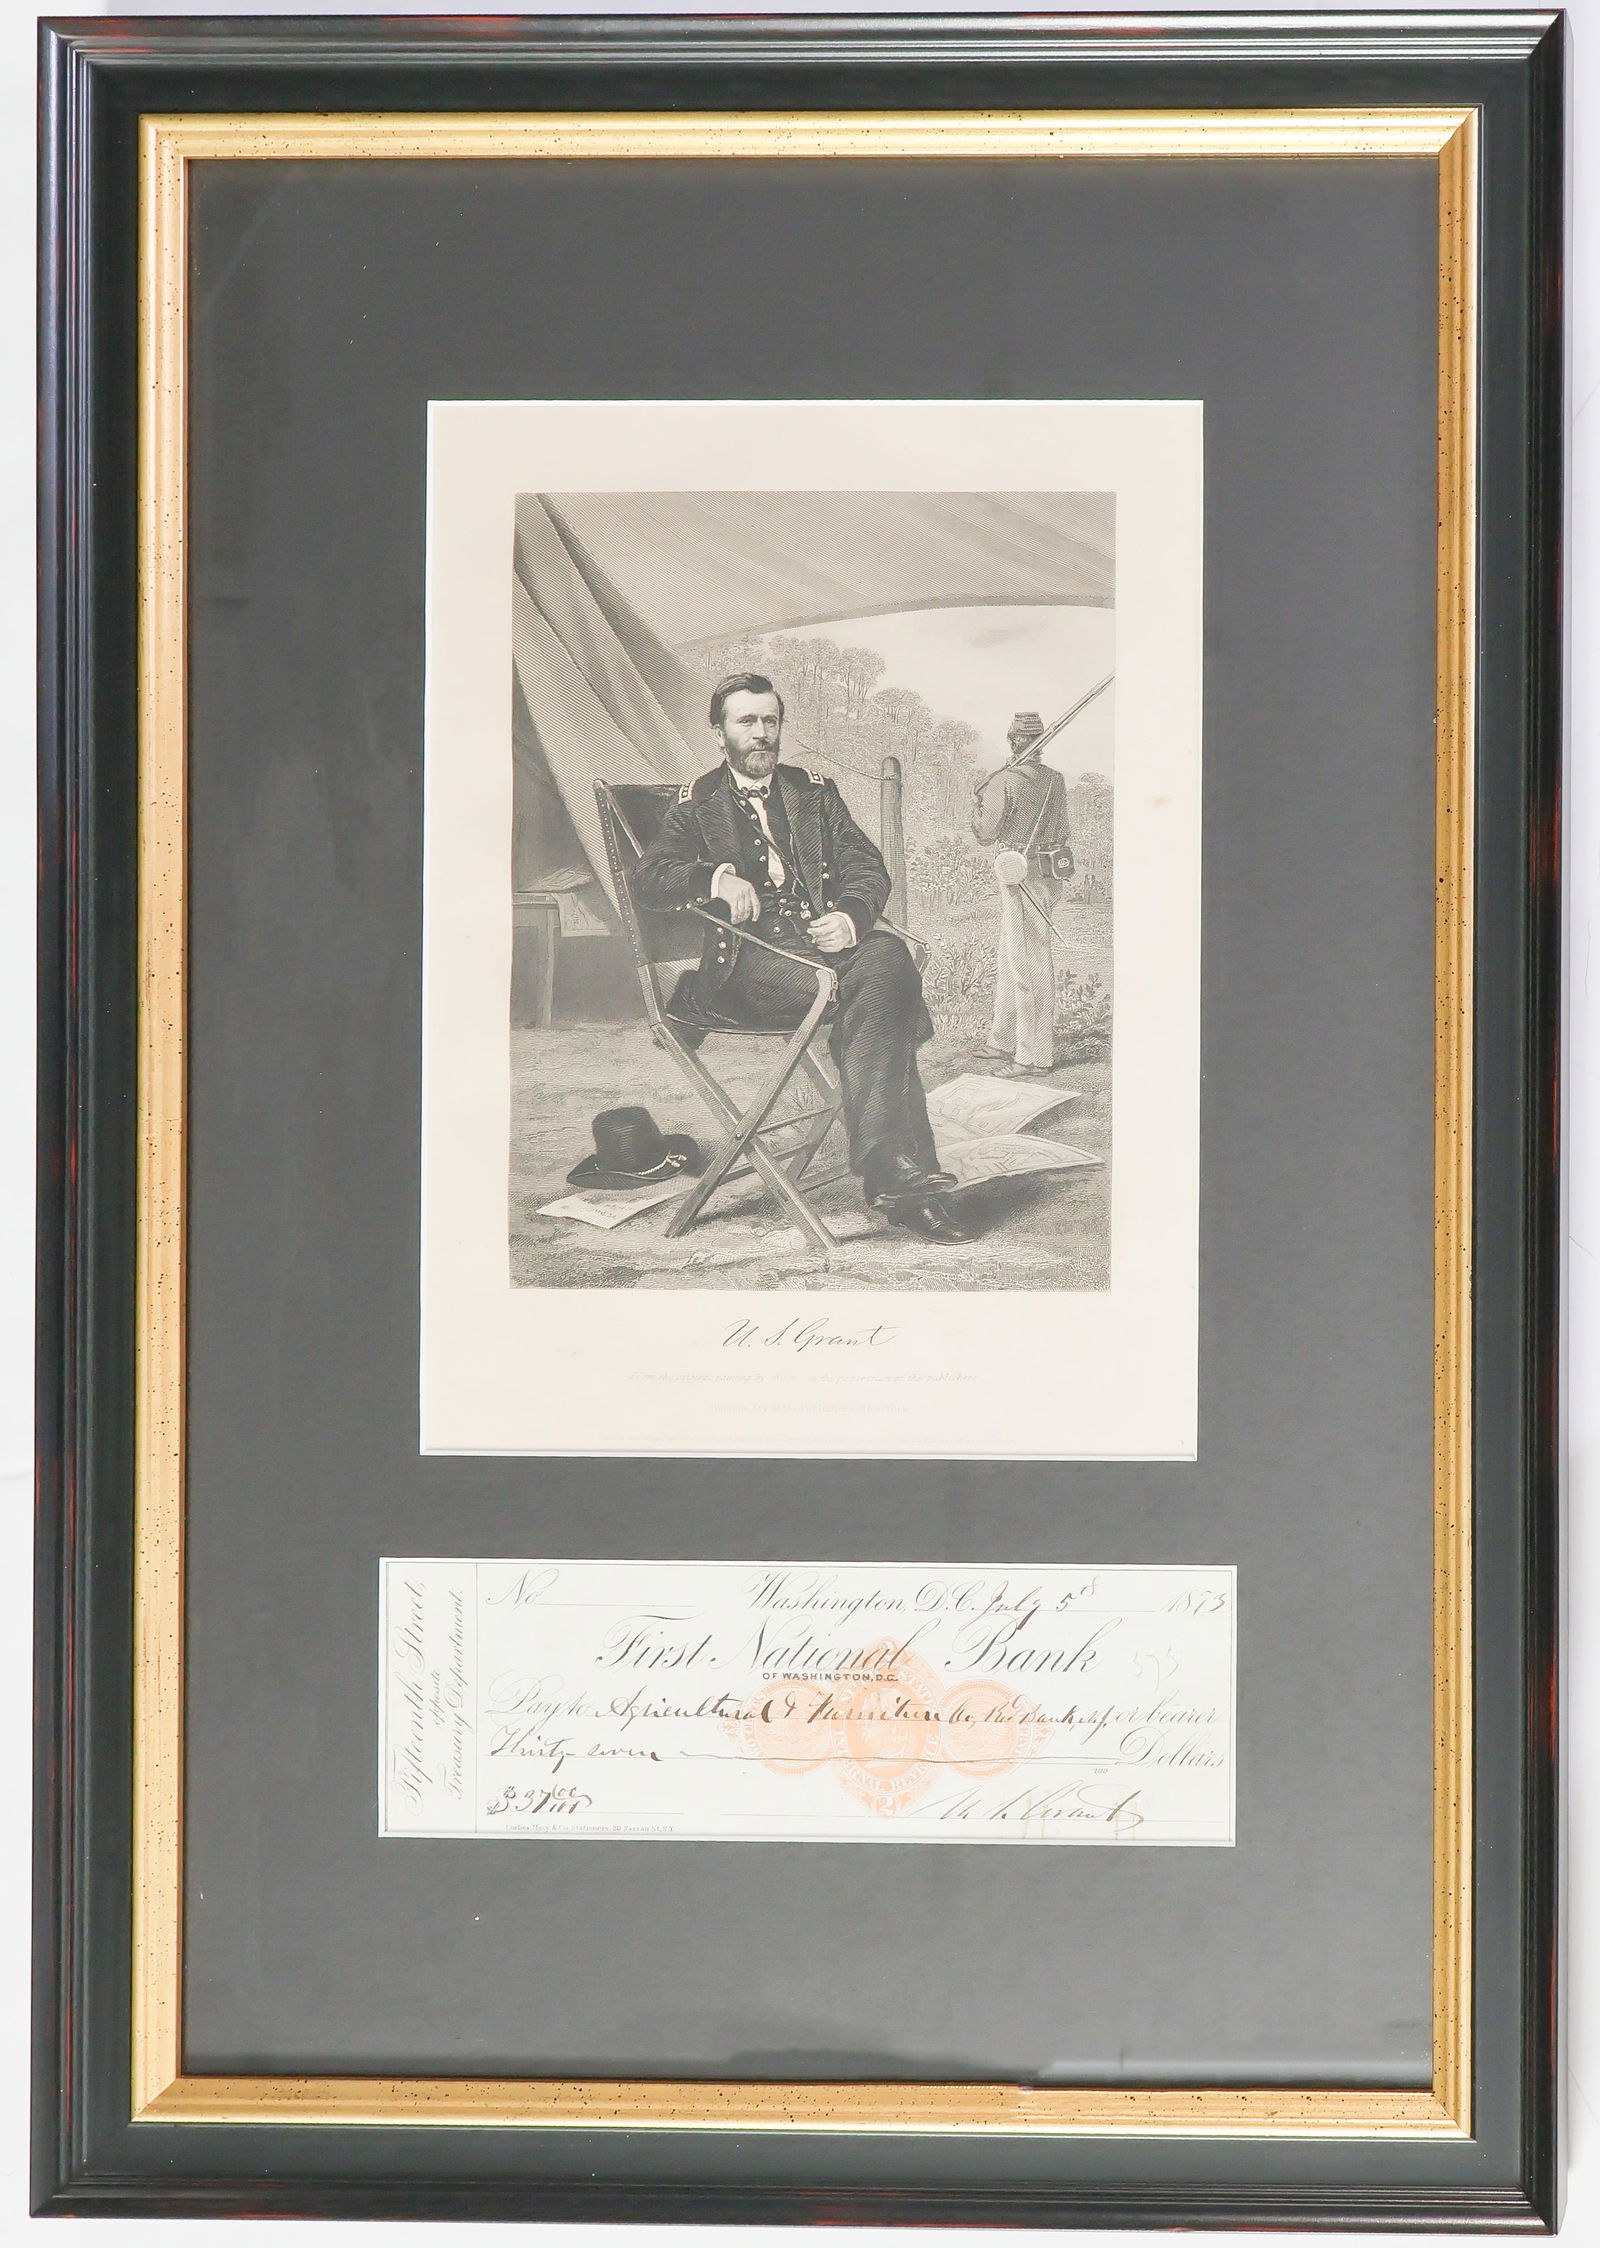 U. S. Grant
From the original painting by in the possession of the publishers
Johnson, Fry & Co. Publishers, New York
Fifteenth Street,
opposite
Treasury Department.
No. Washington, D.C. July 5th 1873
First National Bank
OF WASHINGTON, D.C.
Pay to Agricultural & Furniture Co, Red Bank, N.J. or bearer
Thirty-seven Dollars
100
$37 00/100 U. S. Grant
Corlies, Macy & Co. Stationers, 39 Nassau St, N.Y.
2